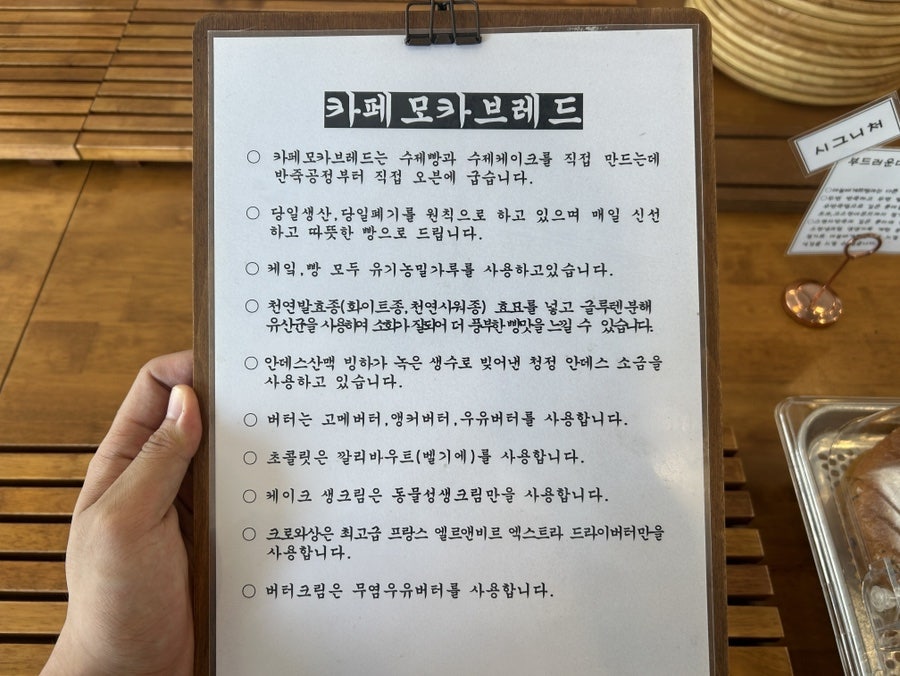 카페모카브레드
○ 카페모카브레드는 수제빵과 수제케이크를 직접 만드는데
반죽공정부터 직접 오븐에 굽습니다.
○ 당일생산,당일폐기를 원칙으로 하고 있으며 매일 신선
하고 따뜻한 빵으로 드립니다.
○ 케잌,빵 모두 유기농밀가루를 사용하고있습니다.
○ 천연발효종(화이트종,천연사워종) 효묘를 넣고 글루텐분해
유산균을 사용하여 소화가 잘되어 더 풍부한 빵맛을 느낄 수 있습니다.
○ 안데스산맥 빙하가 녹은 생수로 빚어낸 청정 안데스 소금을
사용하고 있습니다.
○ 버터는 고메버터,앵커버터,우유버터를 사용합니다.
○ 초콜릿은 깔리바우트(벨기에)를 사용합니다.
○ 케이크 생크림은 동물성생크림만을 사용합니다.
○ 크로와상은 최고급 프랑스 엘르앤비르 엑스트라 드라이버터만을
사용합니다.
○ 버터크림은 무염우유버터를 사용합니다.
시그니쳐
부드러운